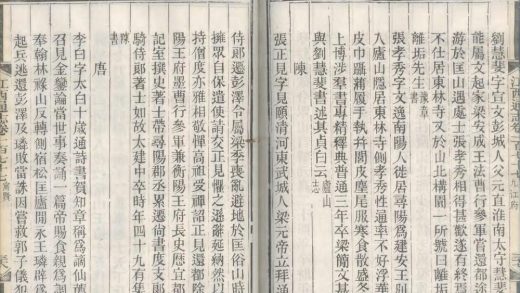 劉慧斐字宣文彭城人父元直淮南太守慧斐
能屬文起家梁安成王法曹行參軍嘗還都途
游於匡山遇處士張孝秀相得甚歡遂有終焉
不仕居東林寺又於山北構園一所號曰離垢
離垢先生
張孝秀字文逸南陽人徙居尋陽為建安王別
入廬山隱居東林寺側孝秀性通率不好浮華
皮巾躡蒲履手執幷閭皮麈尾服寒食散盛冬
上博涉羣書專精釋典普通三年卒梁簡文甚
與劉慧斐書述其貞白云廬山志
陳
張正見字見賾清河東武城人梁元帝立拜通
侍郎遷彭澤令屬梁季喪亂避地於匡俗山時
擁眾自保遣使請交正見懼之遜辭延納然以
持僧度亦雅相敬憚高祖受禪詔正見還都除
陽王府墨曹行參軍兼衡陽王府長史歷宜都
記室撰史著士帶尋陽郡丞累遷尚書度支郎
騎侍郎著士如故太建中卒時年四十九有集
陳書
唐
李白字太白十歲通詩書賀知章稱為謫仙薦
召見金鑾論當世事奏誦一篇帝賜食親為調
奉翰林祿山反轉側宿松匡廬間永王璘辟為
起兵逃還彭澤及璘敗當誅因嘗救郭子儀犯